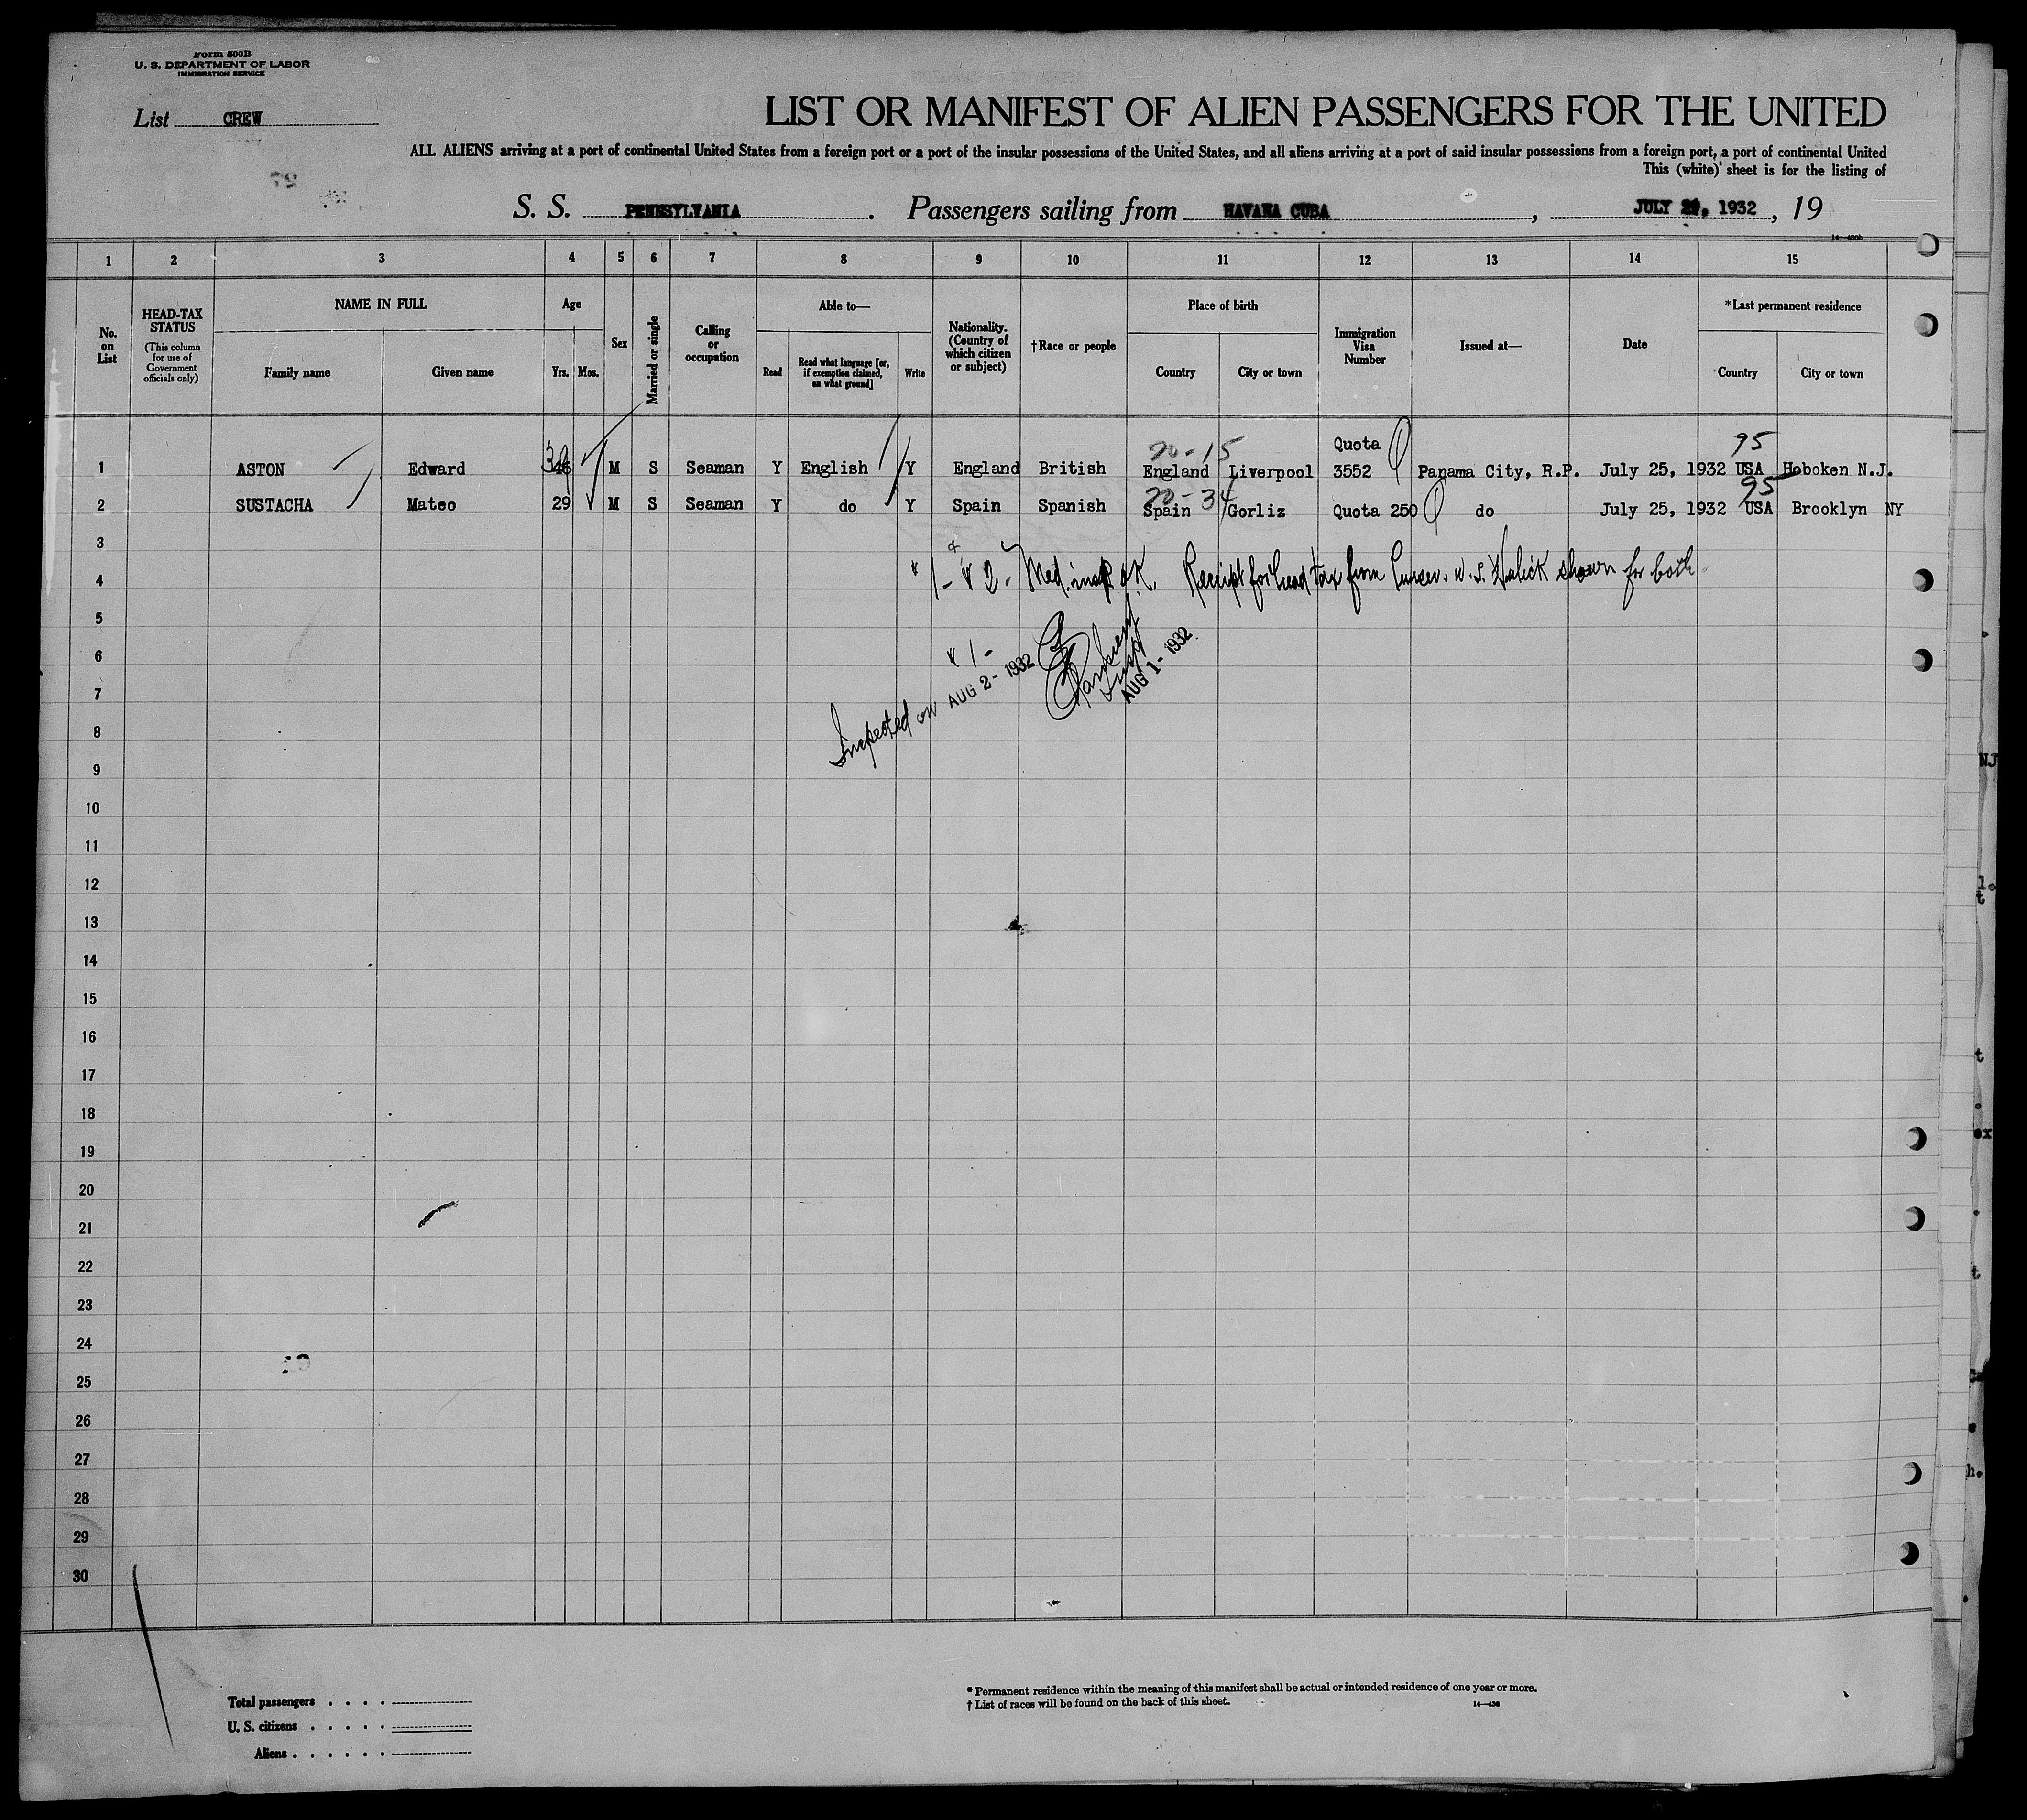 Form 500B
U. S. DEPARTMENT OF LABOR
IMMIGRATION SERVICE
List CREW
LIST OR MANIFEST OF ALIEN PASSENGERS FOR THE UNITED
ALL ALIENS arriving at a port of continental United States from a foreign port or a port of the insular possessions of the United States, and all aliens arriving at a port of said insular possessions from a foreign port, a port of continental United
This (white) sheet is for the listing of
S. S. PENNSYLVANIA. Passengers sailing from HAVANA CUBA, JULY , 1932, 19
1 2 3 4 5 6 7 8 9 10 11 12 13 14 15
No. on List
HEAD-TAX STATUS
(This column for use of Government officials only)
NAME IN FULL
Family name Given name
Age
Yrs. Mos.
Sex
Married or single
Calling or occupation
Able to—
Read Read what language [or, if exemption claimed, on what ground] Write
Nationality. (Country of which citizen or subject)
†Race or people
Place of birth
Country City or town
Immigration Visa Number
Issued at—
Date
*Last permanent residence
Country City or town
20-15 Quota 95
1 ASTON Edward 39 M S Seaman Y English Y England British England Liverpool 3552 Panama City, R.P. July 25, 1932 USA Hoboken N.J.
20-34 95
2 SUSTACHA Mateo 29 M S Seaman Y do Y Spain Spanish Spain Gorliz Quota 250 do July 25, 1932 USA Brooklyn NY
3
4 1- & 2- Med. insp. O.K. Receipt for head tax from Purser. W. S. shown for both
5
6 1-
7 Inspected on AUG 2 - 1932 Insp AUG 1 - 1932
8
9
10
11
12
13
14
15
16
17
18
19
20
21
22
23
24
25
26
27
28
29
30
Total passengers
U. S. citizens
Aliens
* Permanent residence within the meaning of this manifest shall be actual or intended residence of one year or more.
† List of races will be found on the back of this sheet.